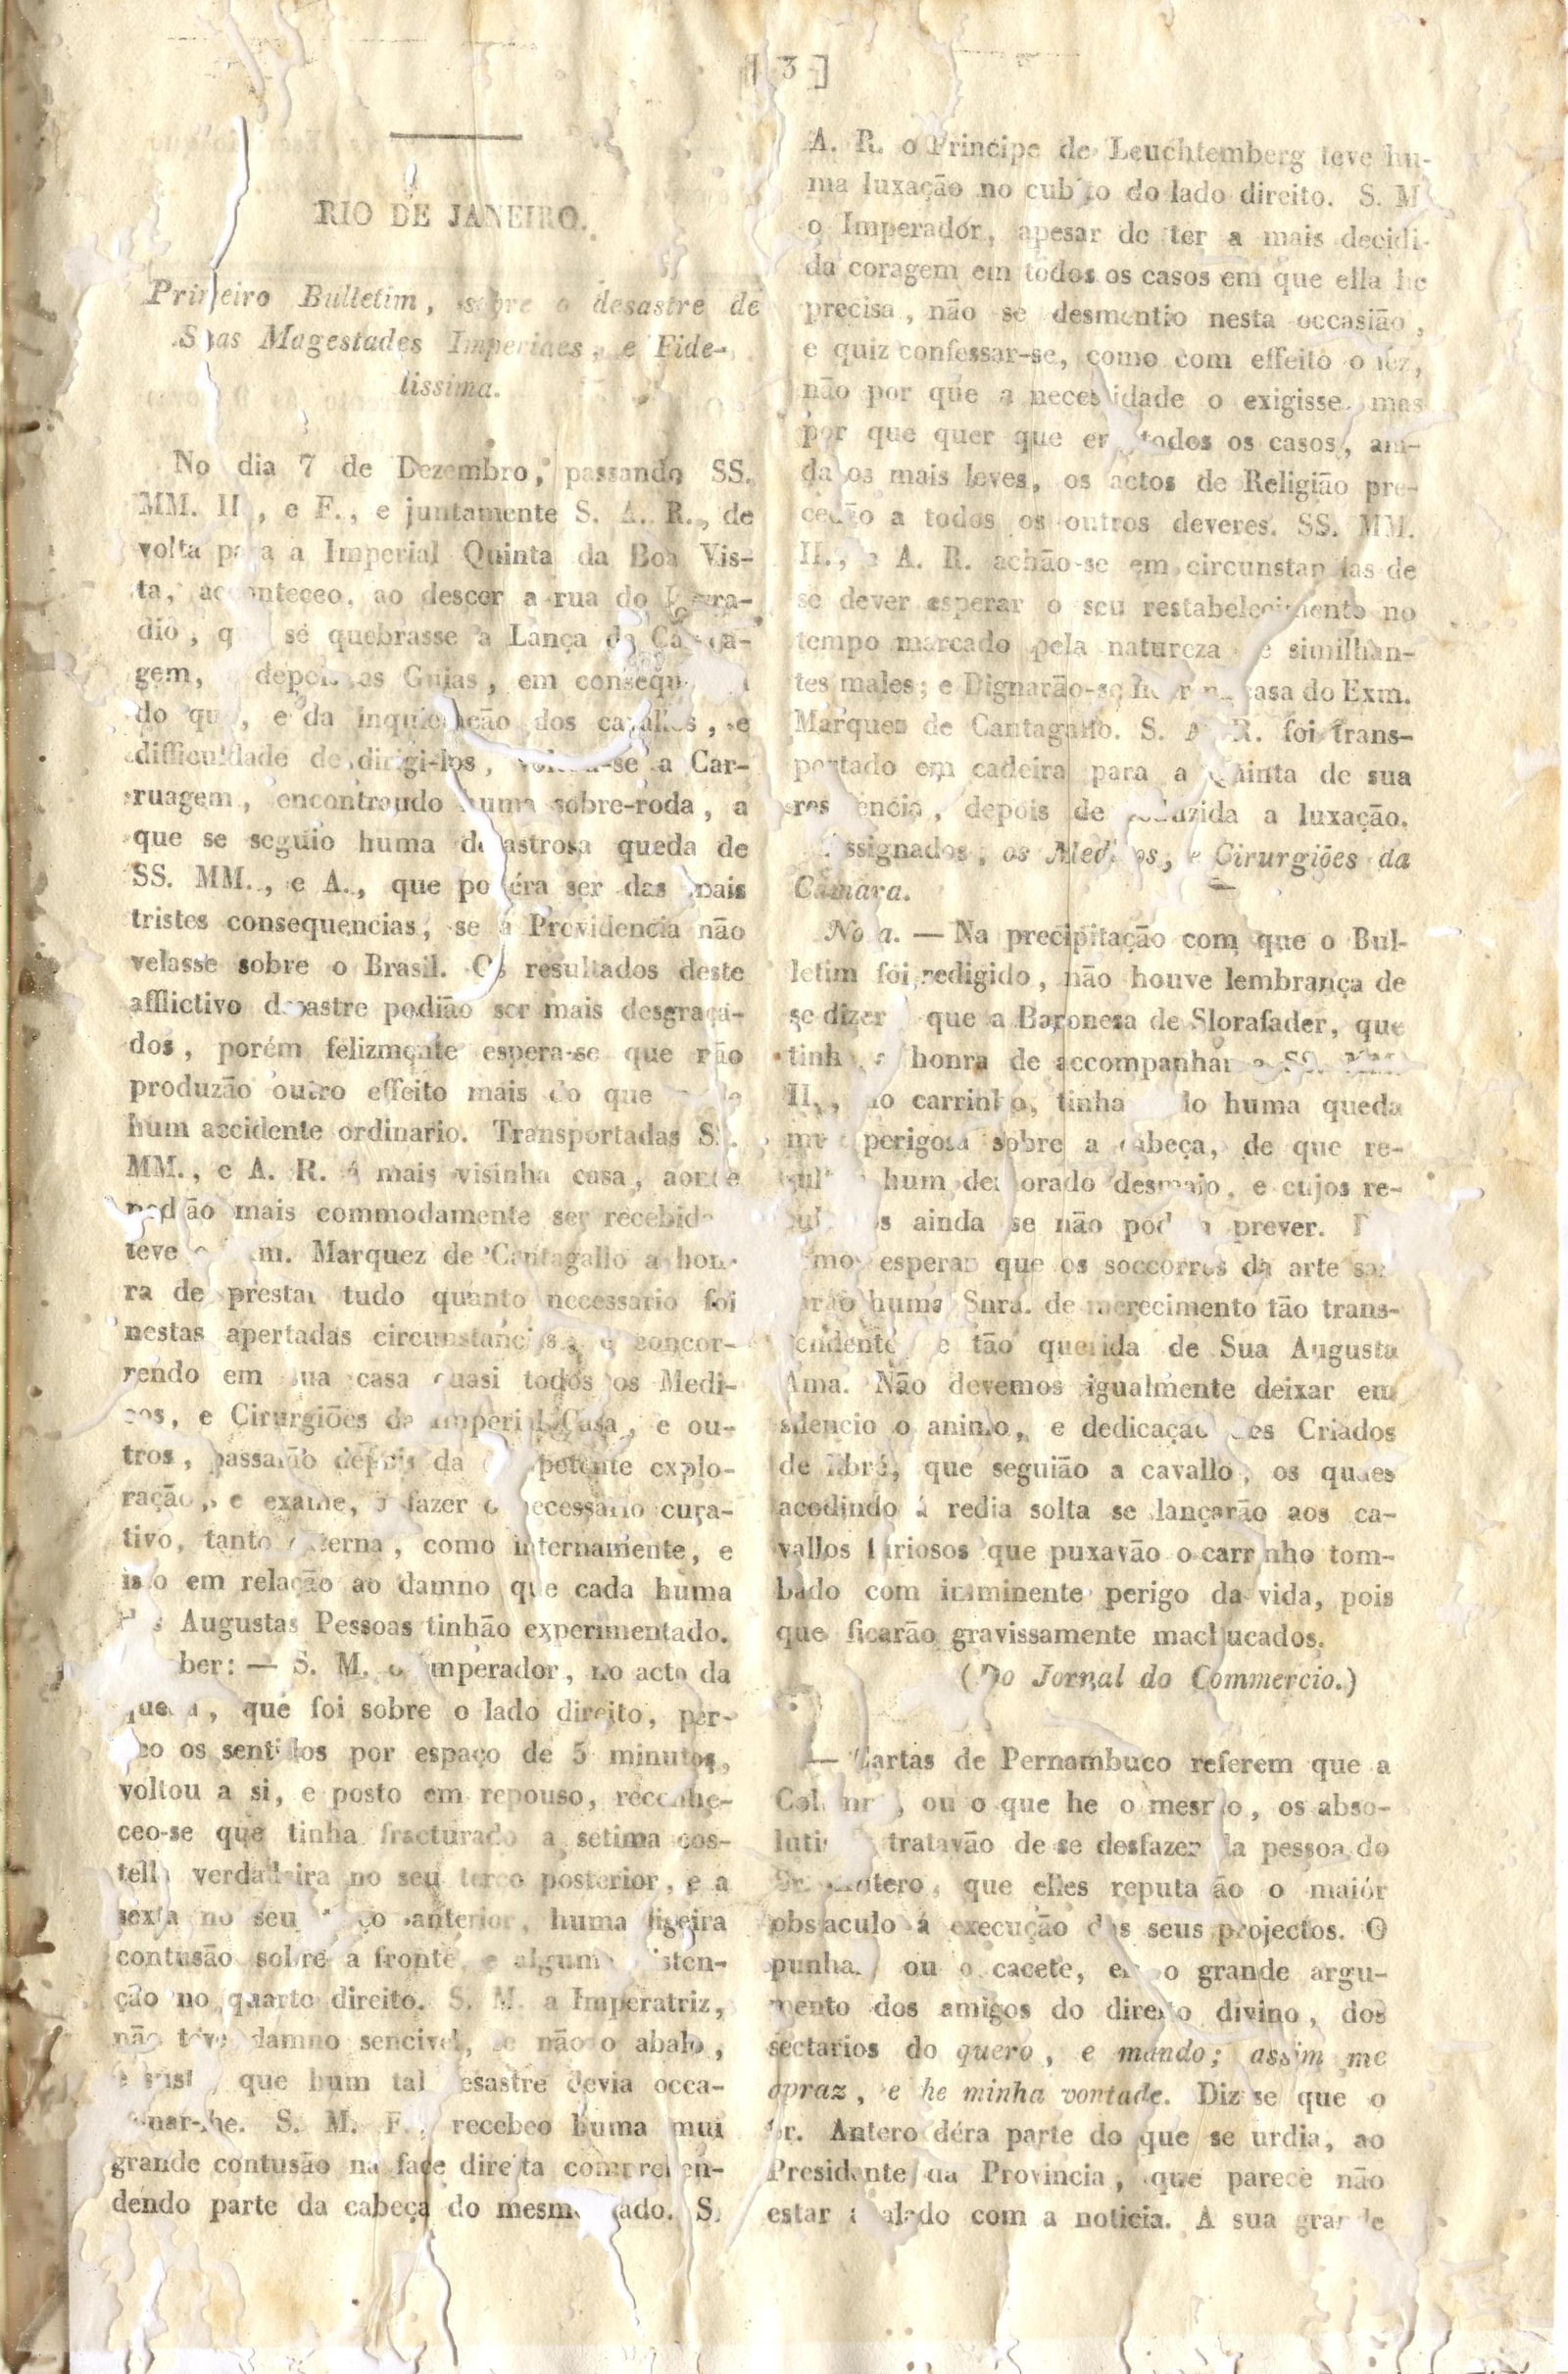 [ 3 ]
RIO DE JANEIRO.
Primeiro Bulletim, sobre o desastre de
Suas Magestades Imperiaes, e Fide-
lissima.
No dia 7 de Dezembro, passando SS.
MM. II, e F., e juntamente S. A. R., de
volta para a Imperial Quinta da Boa Vis-
ta, aconteceo, ao descer a rua do
dio, se quebrasse a Lança da Carrua-
gem, depois as Guias, em
do que, e da inquietação dos cavallos, e
difficuldade de dirigi-los, voltou-se a Car-
ruagem, encontrando huma sobre-roda, a
que se seguio huma desastrosa queda de
SS. MM., e A., que podéra ser das mais
tristes consequencias, se a Providencia não
velasse sobre o Brasil. Os resultados deste
afflictivo desastre podião ser mais desgraça-
dos, porém felizmente espera-se que não
produzão outro effeito mais do que
hum accidente ordinario. Transportadas SS.
MM., e A. R. á mais visinha casa, aonde
podião mais commodamente ser
teve Marquez de Cantagallo a hon-
ra de prestar tudo quanto necessario foi
nestas apertadas circunstancias, e concor-
rendo em sua casa quasi todos os Medi-
cos, e Cirurgiões da Imperial Casa, e ou-
tros, passarão depois da competente explo-
ração, e exame, a fazer o necessario cura-
tivo, tanto externa, como internamente, e
isto em relação ao damno que cada huma
das Augustas Pessoas tinhão experimentado.
ber: — S. M. o Imperador, no acto da
queda, que foi sobre o lado direito, per-
deo os sentidos por espaço de 5 minutos,
voltou a si, e posto em repouso, reconhe-
ceo-se que tinha fracturado a setima cos-
tella verdadeira no seu terço posterior, e a
sexta no seu terço anterior, huma ligeira
contusão sobre a fronte, e alguma disten-
ção no quarto direito. S. M. a Imperatriz,
não teve damno sencivel, se não o abalo,
e susto, que hum tal desastre devia occa-
sionar-lhe. S. M. F., recebeo huma mui
grande contusão na face direita comprehen-
dendo parte da cabeça do mesmo lado. S.
A. R. o Principe de Leuchtemberg teve hu-
ma luxação no cubito do lado direito. S. M
o Imperador, apesar de ter a mais decidi-
da coragem em todos os casos em que ella he
precisa, não se desmentio nesta occasião,
e quiz confessar-se, como com effeito o fez,
não por que a necessidade o exigisse, mas
por que quer que em todos os casos, ain-
da os mais leves, os actos de Religião pre-
cedão a todos os outros deveres. SS. MM.
II., e A. R. achão-se em circunstancias de
se dever esperar o seu restabelecimento no
tempo marcado pela natureza de similhan-
tes males; e Dignarão-se casa do Exm.
Marquez de Cantagallo. S. A. R. foi trans-
portado em cadeira para a Quinta de sua
residencia, depois de reduzida a luxação.
Assignados, os Medicos, e Cirurgiões da
Camara.
Nota. — Na precipitação com que o Bul-
letim foi redigido, não houve lembrança de
se dizer que a Baroneza de Slorafader, que
tinha a honra de accompanhar a SS. MM.
II., no carrinho, tinha huma queda
perigosa sobre a cabeça, de que re-
hum demorado desmaio, e cujos re-
ainda se não prever.
esperar que os soccorros da arte
huma Snra. de merecimento tão trans-
cendente e tão querida de Sua Augusta
Ama. Não devemos igualmente deixar em
silencio o animo, e dedicação dos Criados
de libré, que seguião a cavallo, os quaes
acodindo á redia solta se lançarão aos ca-
vallos furiosos que puxavão o carrinho tom-
bado com imminente perigo da vida, pois
que ficarão gravissamente machucados.
(Do Jornal do Commercio.)
— Cartas de Pernambuco referem que a
ou o que he o mesmo, os abso-
tratavão de se desfazer da pessoa do
Sr. Antero, que elles reputa ão o maiór
obstaculo á execução dos seus projectos. O
punhal, ou o cacete, eis o grande argu-
mento dos amigos do direito divino, dos
sectarios do quero, e mando; assim me
apraz, e he minha vontade. Diz se que o
Sr. Antero déra parte do que se urdia, ao
Presidente da Provincia, que parece não
estar abalado com a noticia. A sua grande